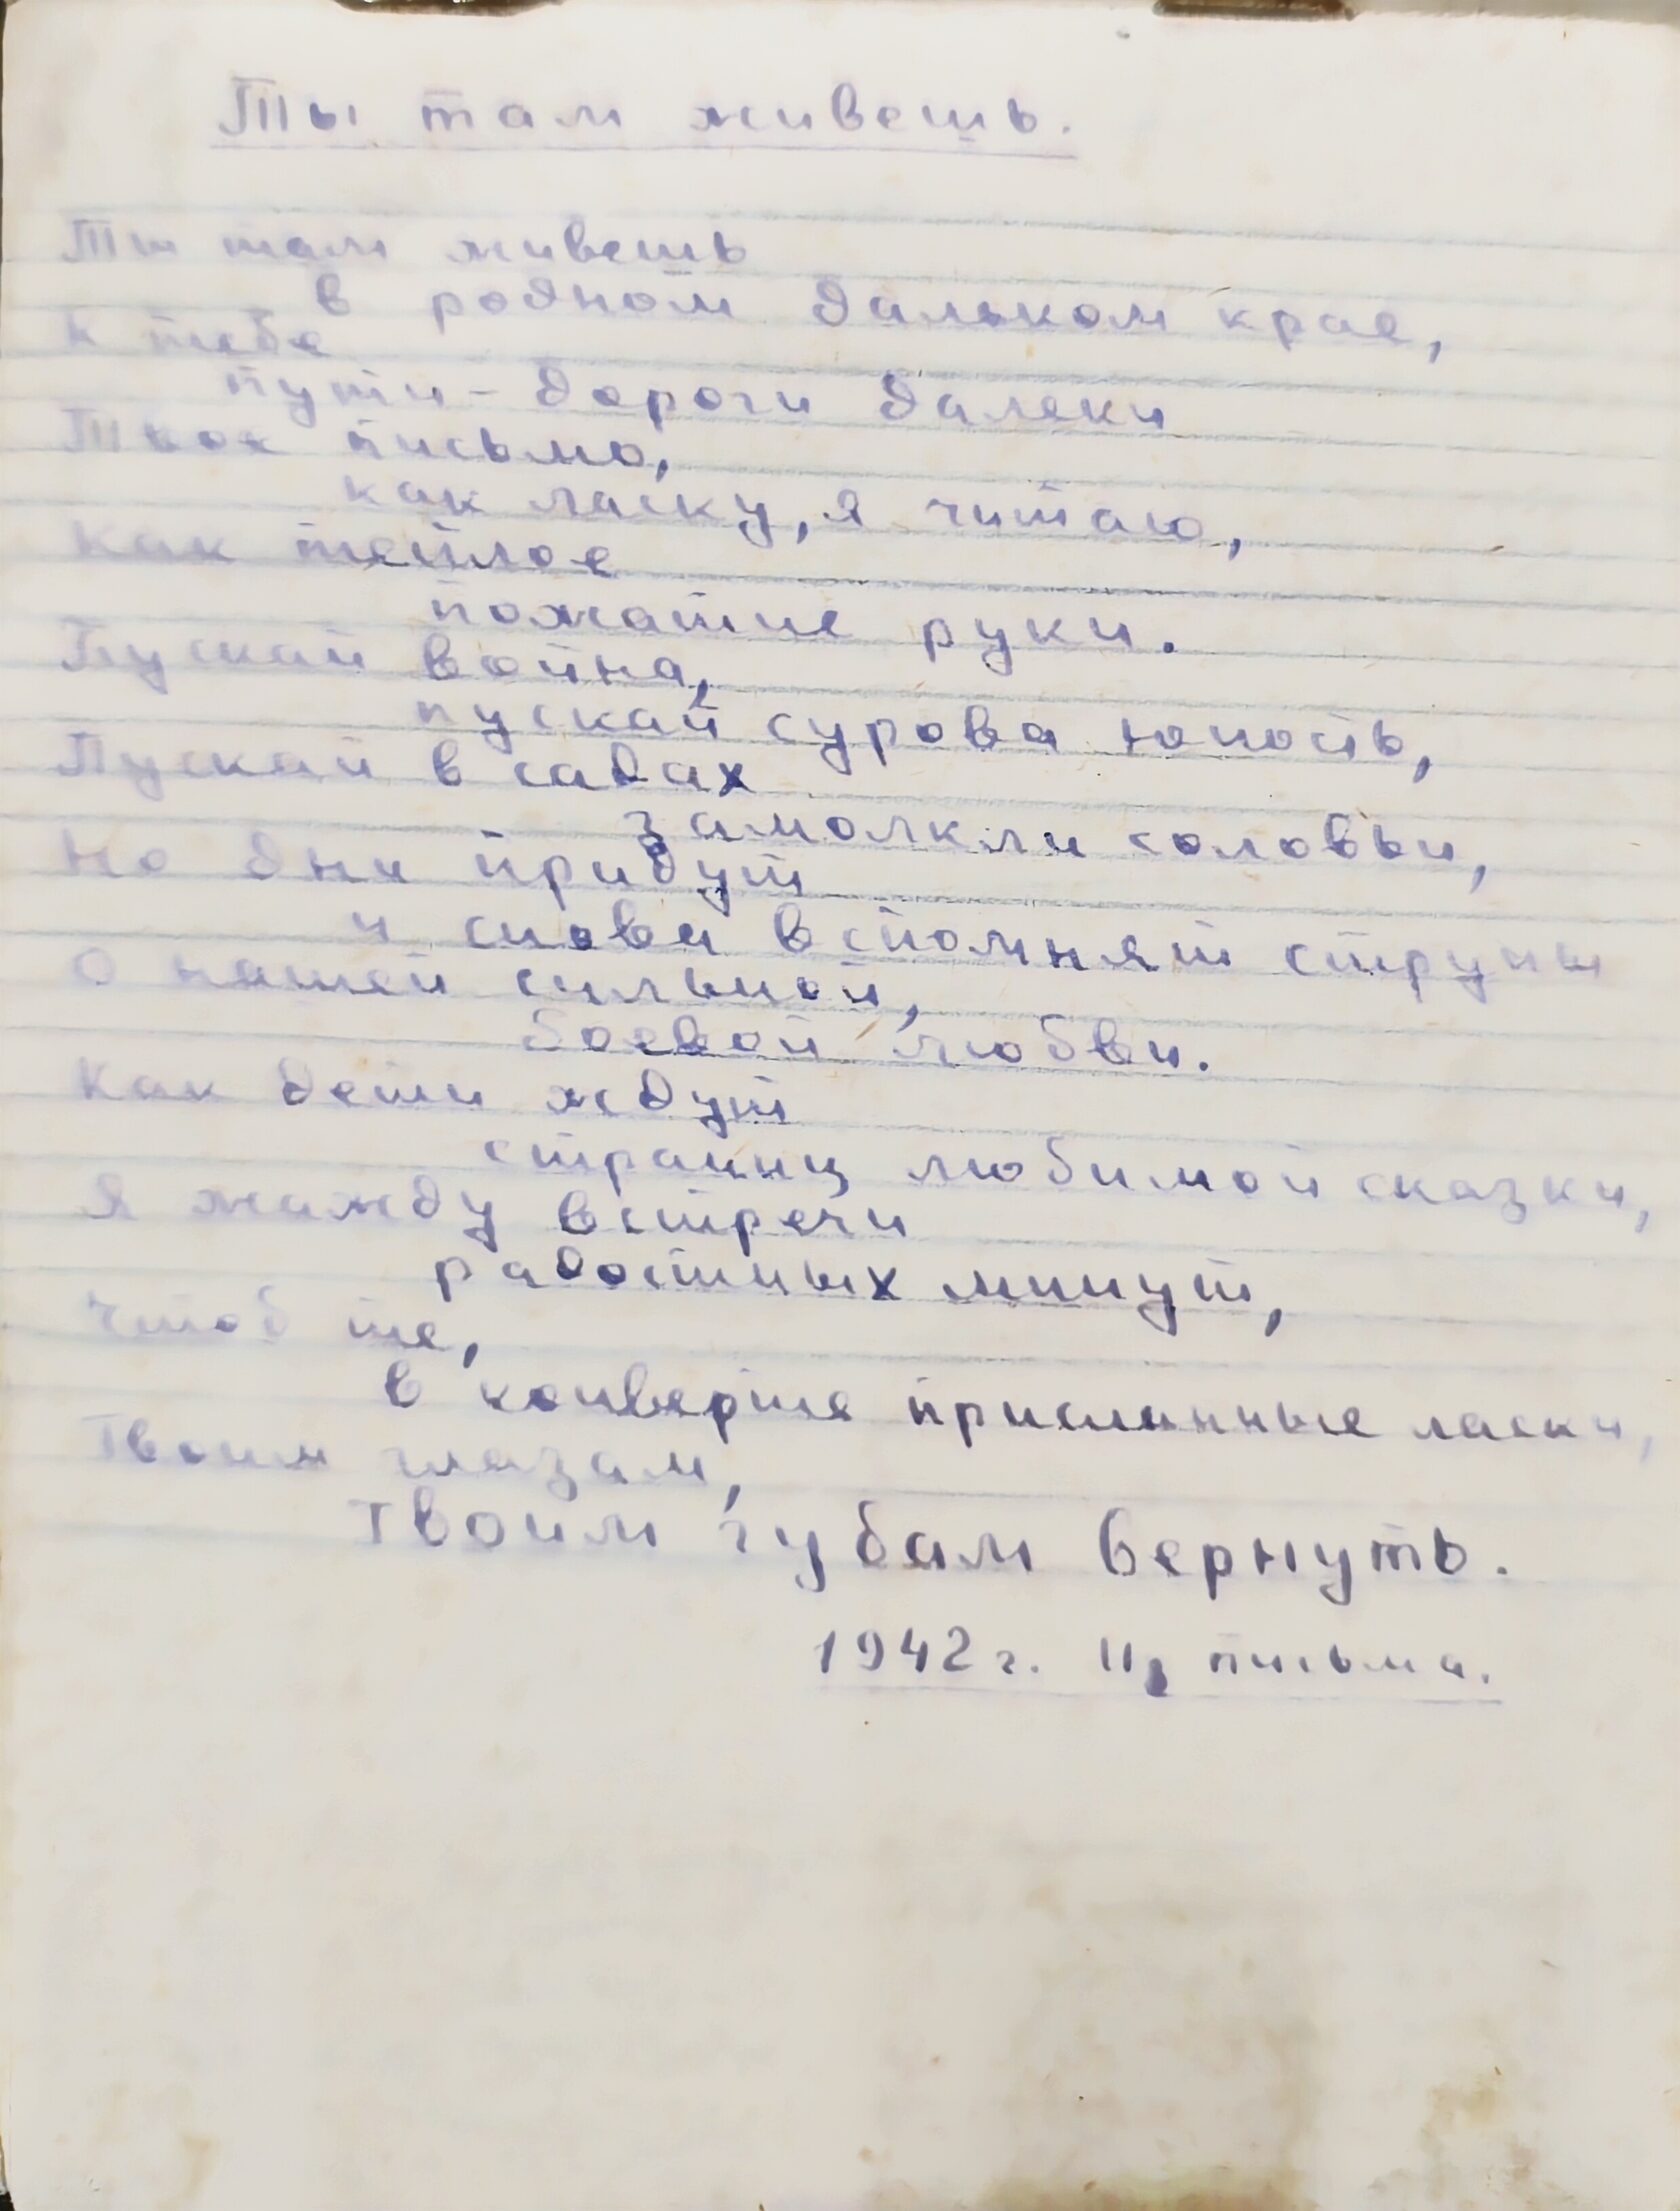 Ты там живешь.
Ты там живешь
в родном далеком крае,
К тебе
пути-дороги далеки
Твое письмо,
как ласку, я читаю,
Как теплое
пожатие руки.
Пускай война,
пускай сурова юность,
Пускай в садах
замолкли соловьи,
Но дни придут
и снова вспомнят струны
О нашей сильной,
боевой любви.
Как дети ждут
страниц любимой сказки,
Я жажду встречи
радостных минут,
Чтоб те,
в конверте присланные ласки,
Твоим глазам,
Твоим губам вернуть.
1942 г. Из письма.